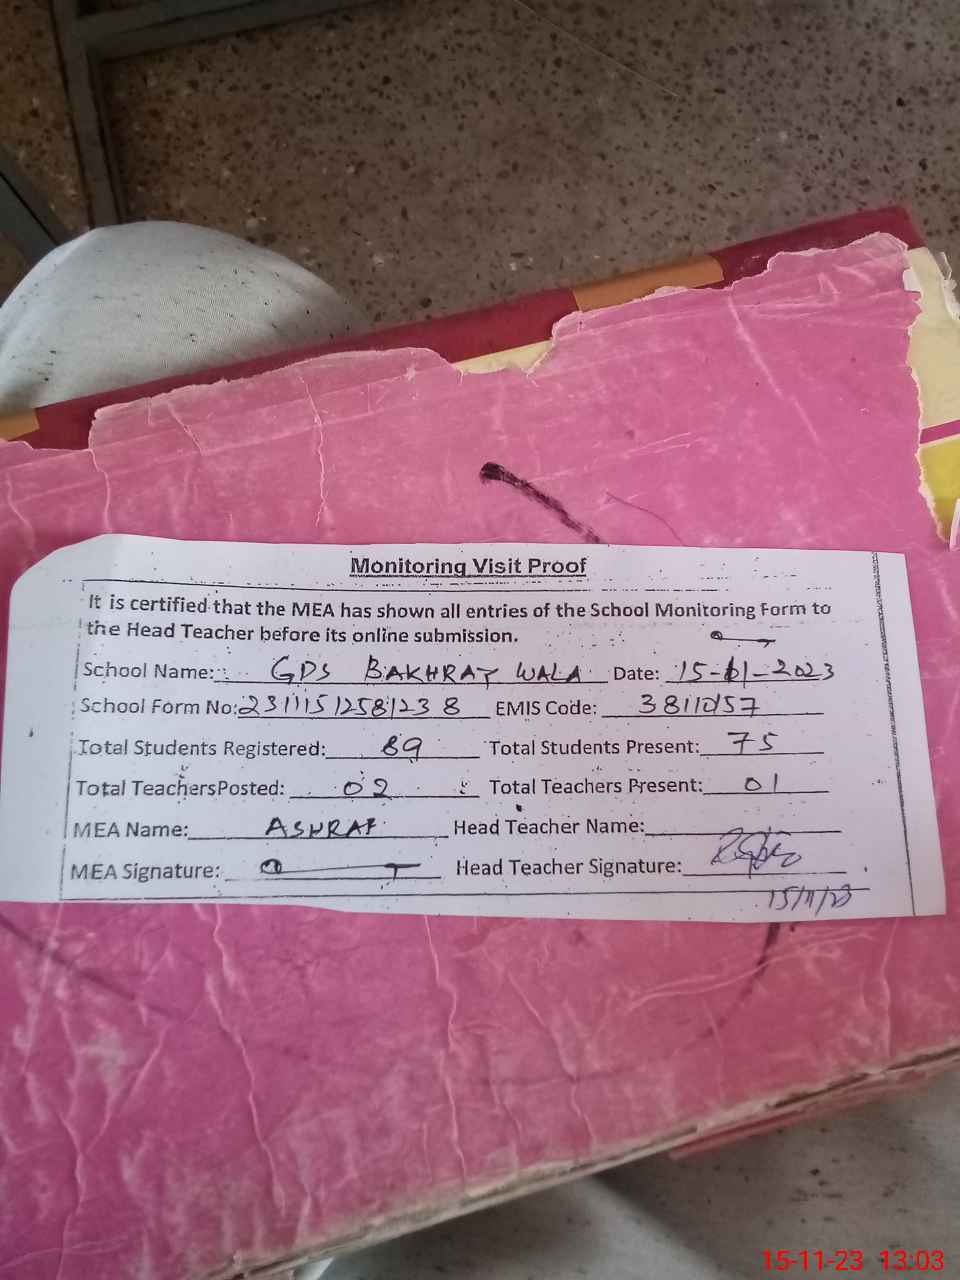 Monitoring Visit Proof
It is certified that the MEA has shown all entries of the School Monitoring Form to
the Head Teacher before its online submission.
School Name: GPS BAKHRAY WALA Date: 15-11-2023
School Form No: 23111512581238 EMIS Code: 38110157
Total Students Registered: 89 Total Students Present: 75
Total TeachersPosted: 02 Total Teachers Present: 01
MEA Name: ASHRAF Head Teacher Name:
MEA Signature: Head Teacher Signature:
15/11/23
15-11-23 13:03